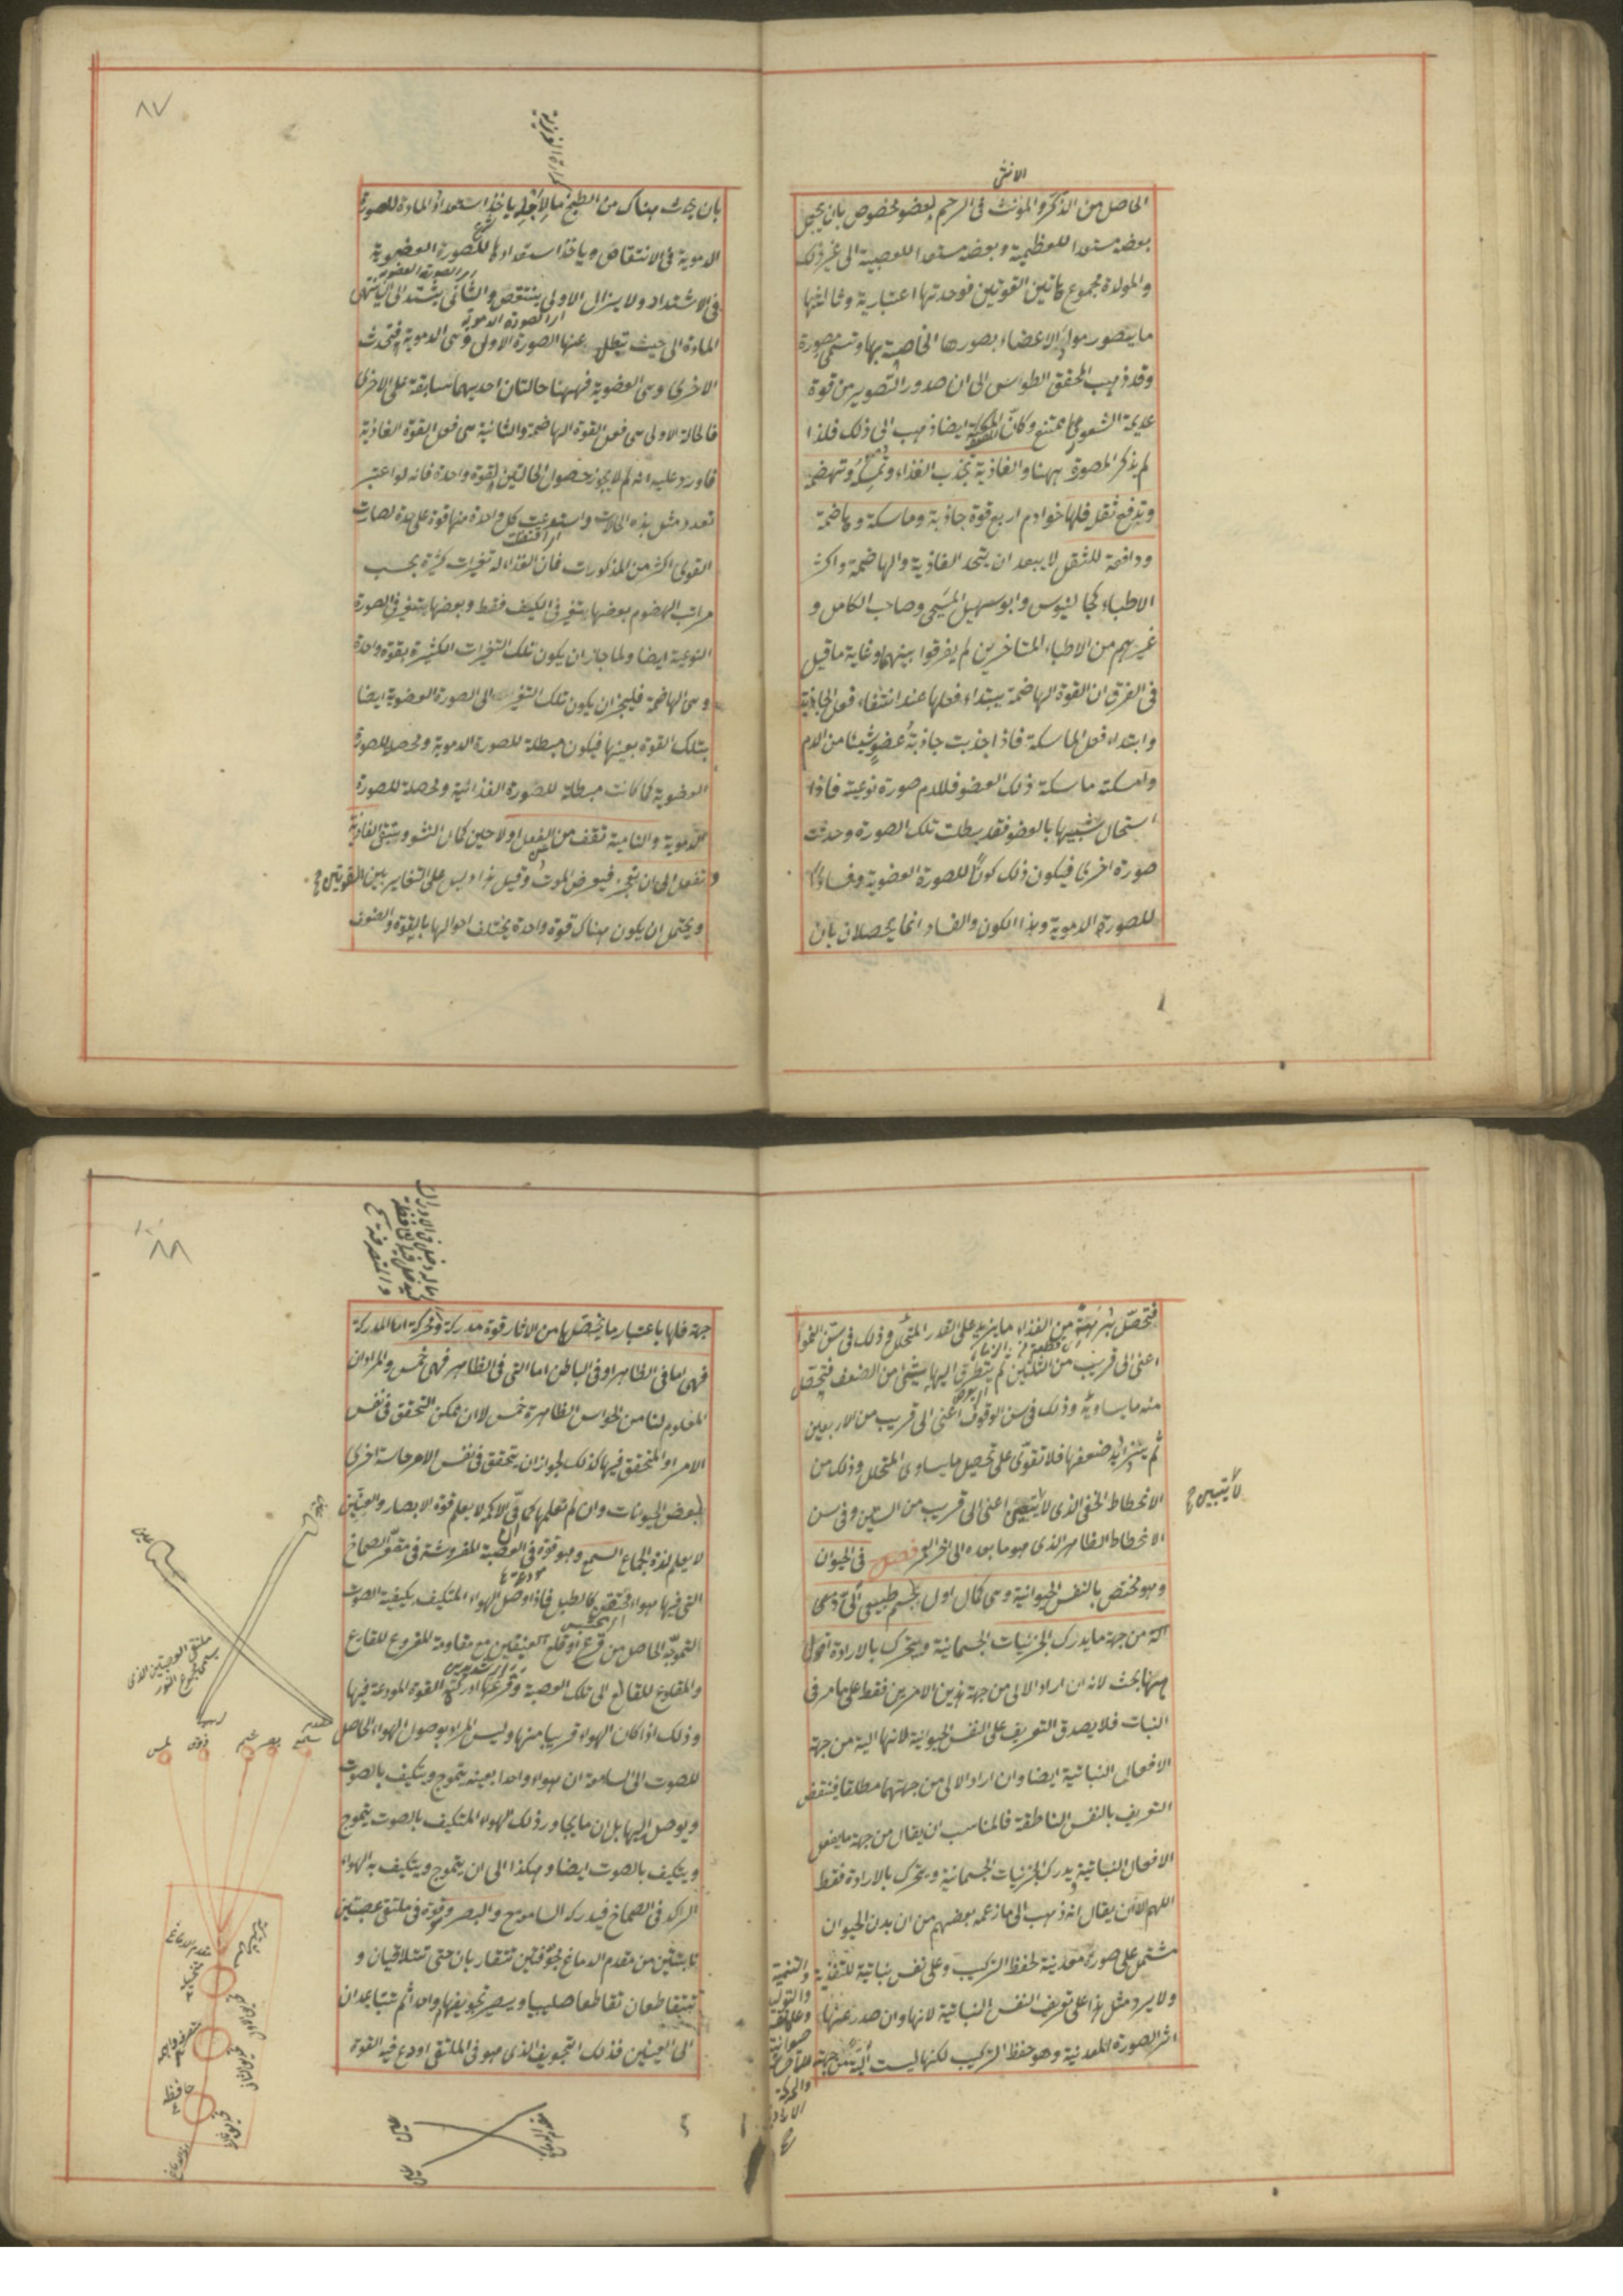 الانثى
الحاصل من الذكر والمؤنث فى الرحم لعضو مخصوص بان يجعل
بعضه مستعدا للعظمية وبعضه مستعدا للعصبية الى غير ذلك
والمولدة مجموع هاتين القوتين فوحدتها اعتبارية وثالثتها
ما يتصور مواد الاعضاء بصورها الخاصة بها وتسمى مصورة
وقد ذهب المحقق الطوسى الى ان صدور التصوير من قوة
عديمة الشعور مما يمتنع وكان المصنف ايضا ذهب الى ذلك فلذا
لم يذكر المصورة ههنا والغاذية تجذب الغذاء وتمسكه وتهضمه
وتدفع ثفله فلها خوادم اربع قوة جاذبة وماسكة وهاضمة
ودافعة للثفل لا يبعد ان يتحد الغاذية والهاضمة واكثر
الاطباء كجالينوس وابو سهيل المسيحى وصاحب الكامل و
غيرهم من الاطباء المتاخرين لم يفرقوا بينهما وغاية ما قيل
فى الفرق ان القوة الهاضمة يبتداء فعلها عند انتهاء فعل الجاذبة
وابتداء فعل الماسكة فاذا جذبت جاذبة عضو شيئا من الدم
وامسكته ماسكة ذلك العضو فللدم صورة نوعية فاذا
استحال شبيها بالعضو فقد بطلت تلك الصورة وحدثت
صورة اخرى فيكون ذلك كونا للصورة العضوية وفسادا
للصورة الدموية وهذا الكون والفساد انما يحصلان بان
٨٧
بان يحدث هناك من الطبخ ما لاجله ياخذ استعداد المادة للصورة
الدموية فى الانتقاص وياخذ استعدادها للصورة العضوية
فى الاشتداد ولا يزال الاولى ينتقص والثانى يشتد الى ان ينتهى
المادة الى حيث تبطل عنها الصورة الاولى وهى الدموية فتحدث
الاخرى وهى العضوية فههنا حالتان احديهما سابقة على الاخرى
فالحالة الاولى هى فعل القوة الهاضمة والثانية هى فعل القوة الغاذية
فاورد عليه انه لم لا يجوز حصول الحالتين بقوة واحدة فانه لو اعتبر
تعدد مثل هذه الحالات واستدعت كل واحدة منها قوة على حدة لصارت
القوى اكثر من المذكورات فان الغذاء له تغيرات كثيرة بحسب
مراتب الهضوم بعضها يتغير فى الكيف فقط وبعضها يتغير فى الصورة
النوعية ايضا ولما جاز ان يكون تلك التغيرات الكثيرة بقوة واحدة
وهى الهاضمة فليجز ان يكون تلك التغير الى الصورة العضوية ايضا
بتلك القوة بعينها فيكون مبطلة للصورة الدموية ومحصلة للصورة
العضوية كما كانت مبطلة للصورة الغذائية ومحصلة للصورة
الدموية والنامية تقف من الفعل اولا حين كمال النشو ويبقى الغاذية
وتفعل الى ان تعجز فيعرض الموت وقيل هذا دليل على التغاير بين القوتين
ويحتمل ان يكون هناك قوة واحدة يختلف احوالها بالقوة والضعف
فتحصل من الغذاء ما يزيد على القدر المتحلل وذلك فى سن النمو
اعنى الى قريب من الثلثين ثم يتطرق اليها شيئ من الضعف فتحصل
منه ما يساويه وذلك فى سن الوقوف اعنى الى قريب من الاربعين
ثم يتزايد ضعفها فلا تقوى على تحصيل ما يساوى المتحلل وذلك من
الانحطاط الخفى الذى لا يتبين اعنى الى قريب من الستين وفى سن
الانحطاط الظاهر الذى هو ما بعده الى اخر العمر فصل فى الحيوان
لا يتبين
وهو مختص بالنفس الحيوانية وهى كمال اول لجسم طبيعى آلى ذى
آلة من جهة ما يدرك الجزئيات الجسمانية ويتحرك بالارادة اقول
ههنا بحث لانه ان اراد الآلى من جهة هذين الامرين فقط على ما مر فى
النبات فلا يصدق التعريف على النفس الحيوانية لانها آلية من جهة
الافعال النباتية ايضا وان اراد الآلى من جهتهما مطلقا فينتقض
التعريف بالنفس الناطقة فالمناسب ان يقال من جهة ما يفعل
الافعال النباتية ويدرك الجزئيات الجسمانية ويتحرك بالارادة فقط
اللهم الا ان يقال انه ذهب الى ما زعمه بعضهم من ان بدن الحيوان
مشتمل على صورة معدنية لحفظ التركيب وعلى نفس نباتية للتغذية
والتنمية
والتوليد
ولا يرد مثل هذا على تعريف النفس النباتية لانها وان صدر عنها
اثر الصورة المعدنية وهو حفظ التركيب لكنها ليست آلية من جهة
٨٨
جهة فلها باعتبار ما يختصها من الاثار قوة مدركة ومحركة اما المدركة
فهى اما فى الظاهر او فى الباطن اما التى فى الظاهر فهى خمس والمراد ان
المعلوم لنا من الحواس الظاهرة خمس لا ان ممكن التحقق فى نفس
الامر او المتحقق فيها كذلك لجواز ان يتحقق فى نفس الامر حاسة اخرى
لبعض الحيوانات وان لم نعلمها كما ان الاكمه لا يعلم قوة الابصار والعنين
لا يعلم لذة الجماع السمع وهو قوة فى العصبة المفروشة فى مقعر الصماخ
التى فيها هواء محتقن كالطبل فاذا وصل الهواء المتكيف بكيفية الصوت
التموجه الحاصل من قرع او قلع العنيفين مع مقاومة المقروع للقارع
والمقلوع للقالع الى تلك العصبة وقرعها ادركته القوة المودعة فيها
وذلك اذا كان الهواء قريبا منها وليس المراد بوصول الهواء الحامل
للصوت الى السامعة ان هواء واحدا بعينه يتموج ويتكيف بالصوت
ويوصل اليها بل ان ما يجاور ذلك الهواء المتكيف بالصوت يتموج
ويتكيف بالصوت ايضا وهكذا الى ان يتموج ويتكيف به الهواء
الراكد فى الصماخ فيدركه السامع والبصر وقوة فى ملتقى عصبتين
نابتتين من مقدم الدماغ مجوفتين تتقاربان حتى تتلاقيان و
تتقاطعان تقاطعا صليبيا ويصير تجويفهما واحدا ثم تتباعدان
الى العينين فذلك التجويف الذى هو فى الملتقى اودع فيه القوة
عين
ملتقى العصبتين الذى
مجمع النور
سمع
بصر
شم
ذوق
لمس
مقدم الدماغ
متخيلة
حافظة